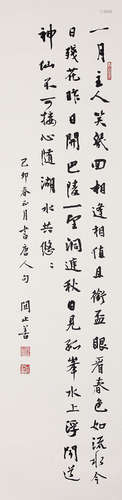 一月主人笑幾回相逢相值且銜盃眼看春色如流水今
日殘花昨日開巴陵一望洞庭秋日見孤峯水上浮聞道
神仙不可接心隨湖水共悠悠
己卯春正月書唐人句